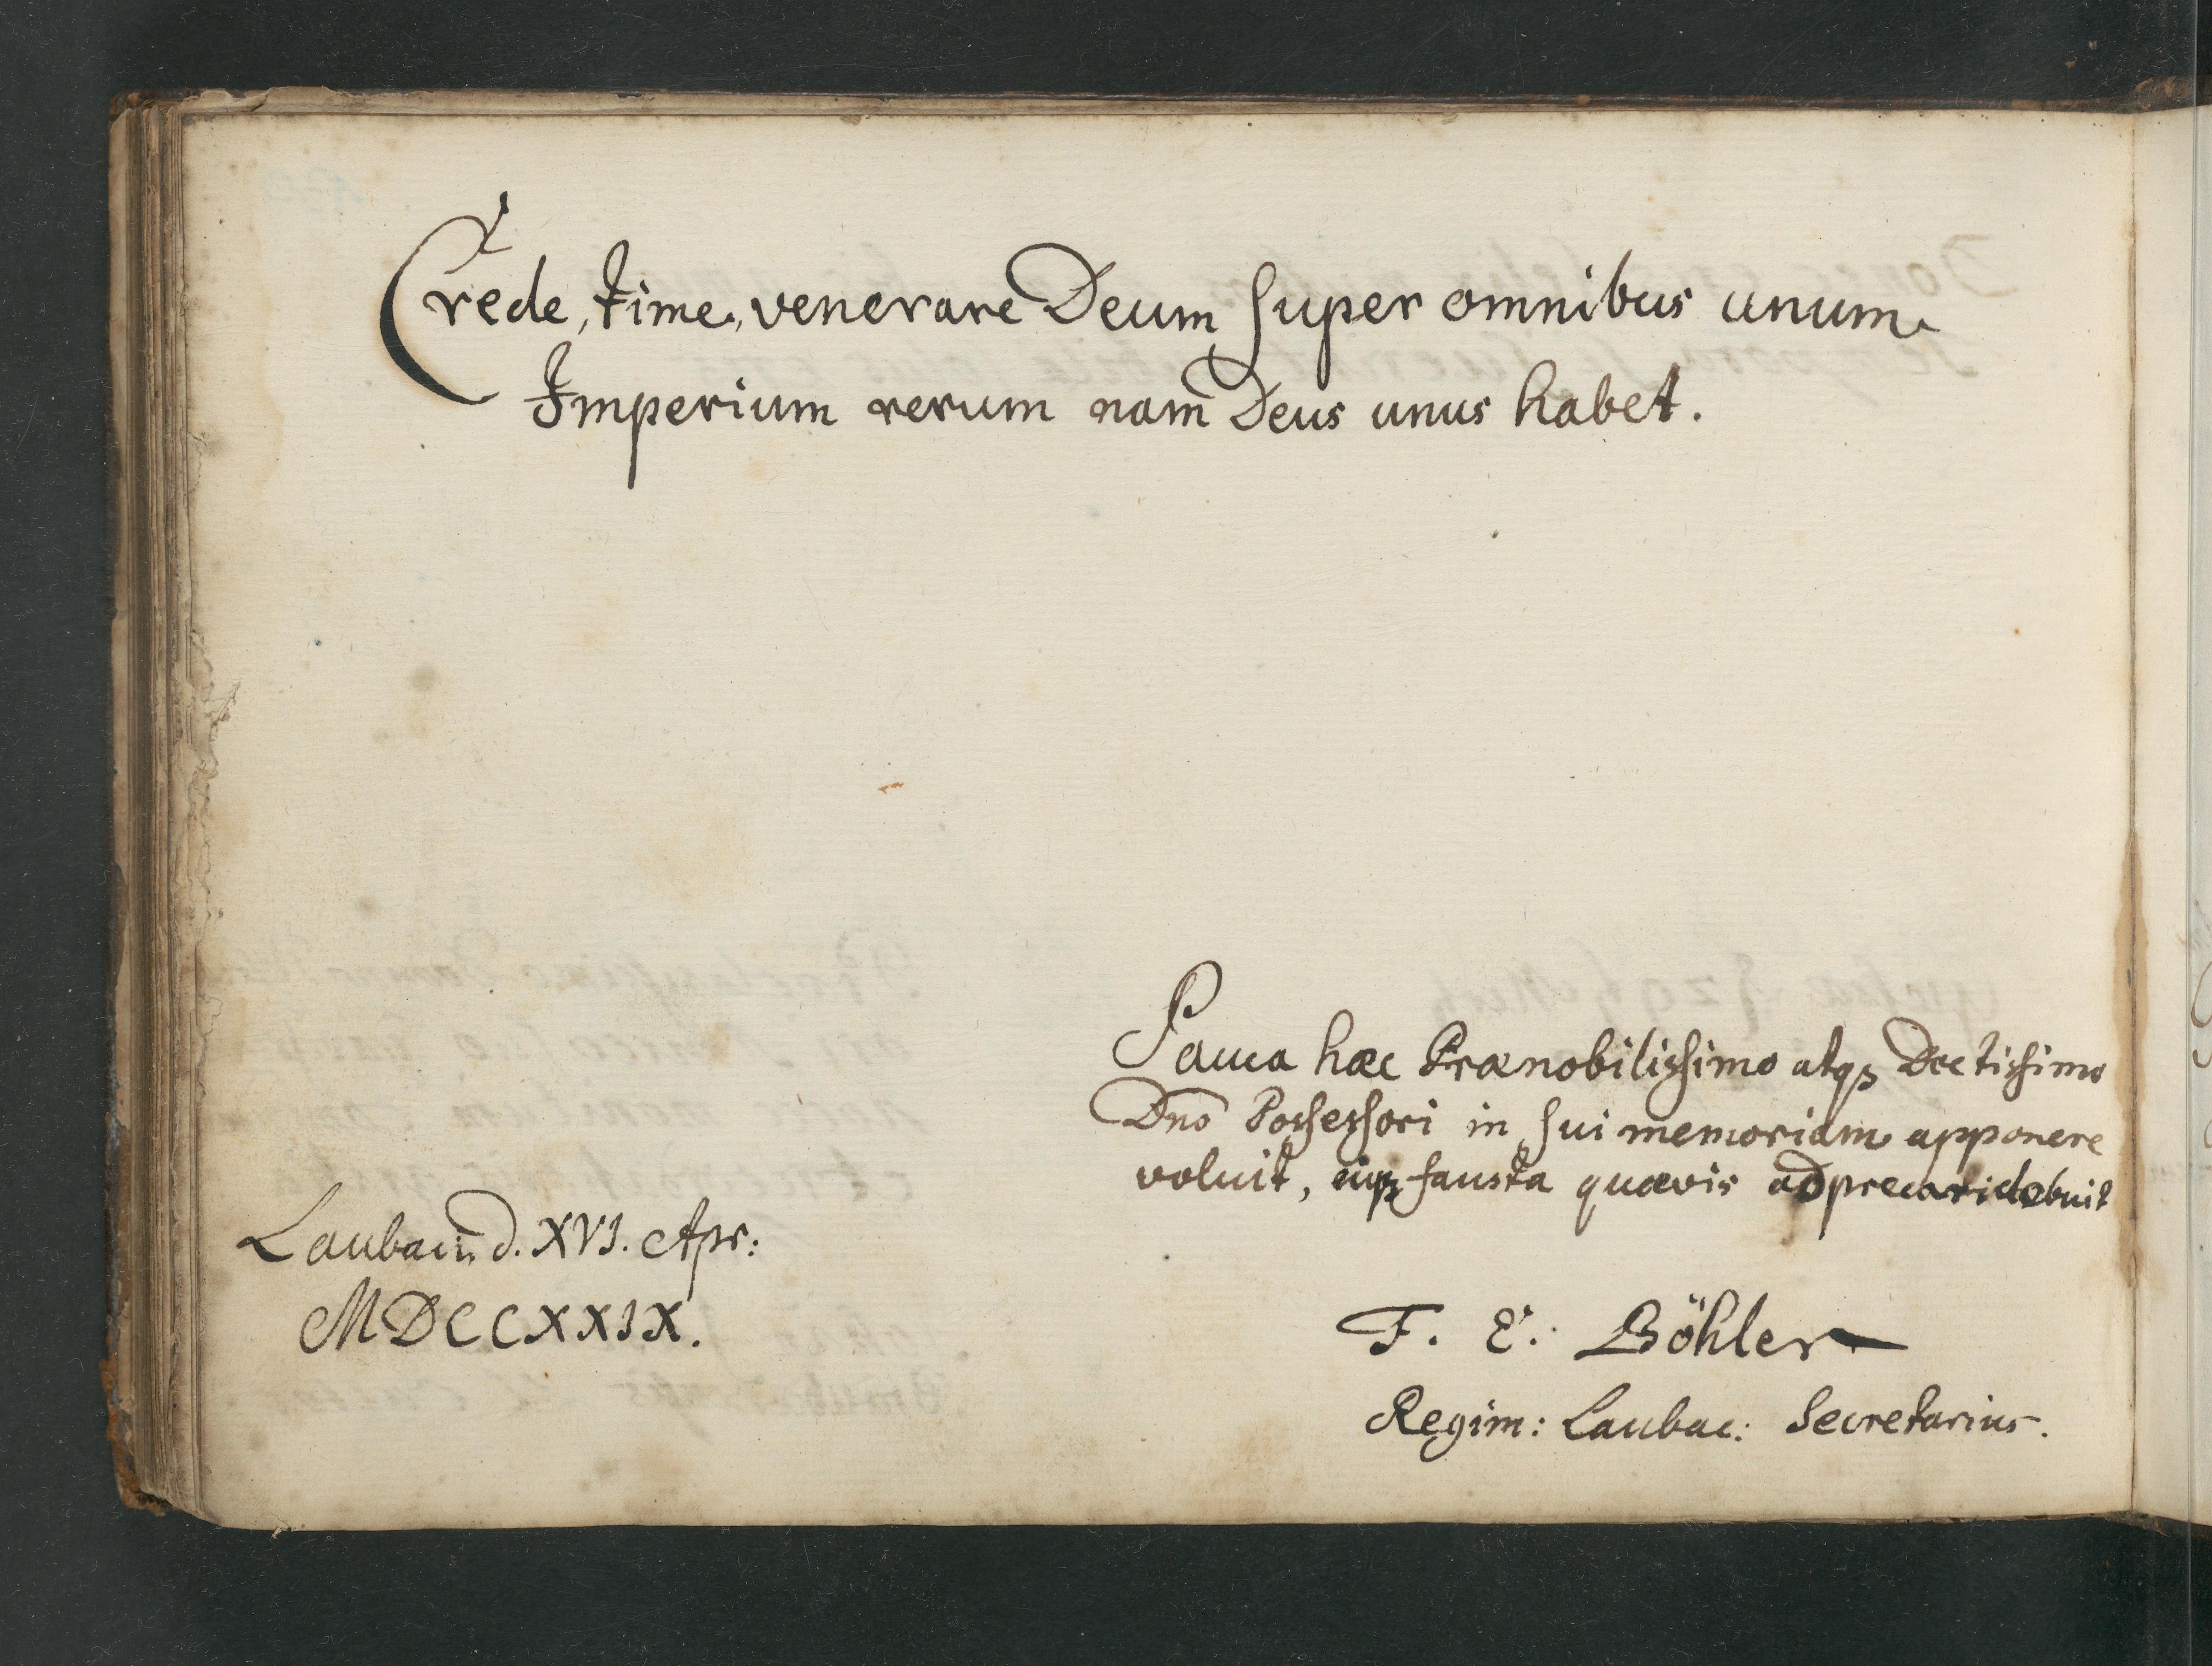 Crede, time, venerare Deum super omnibus unum
Imperium rerum nam Deus unus habet.
Pauca hæc Prænobilissimo atq3 Doctissimo
Dno Possessori in sui memoriam apponere
voluit, eiq3 fausta quævis adprecari debuit
Laubac d. XVI. Apr:
MDCCXXIX.
F. E. Böhler
Regim: Laubac: Secretarius.